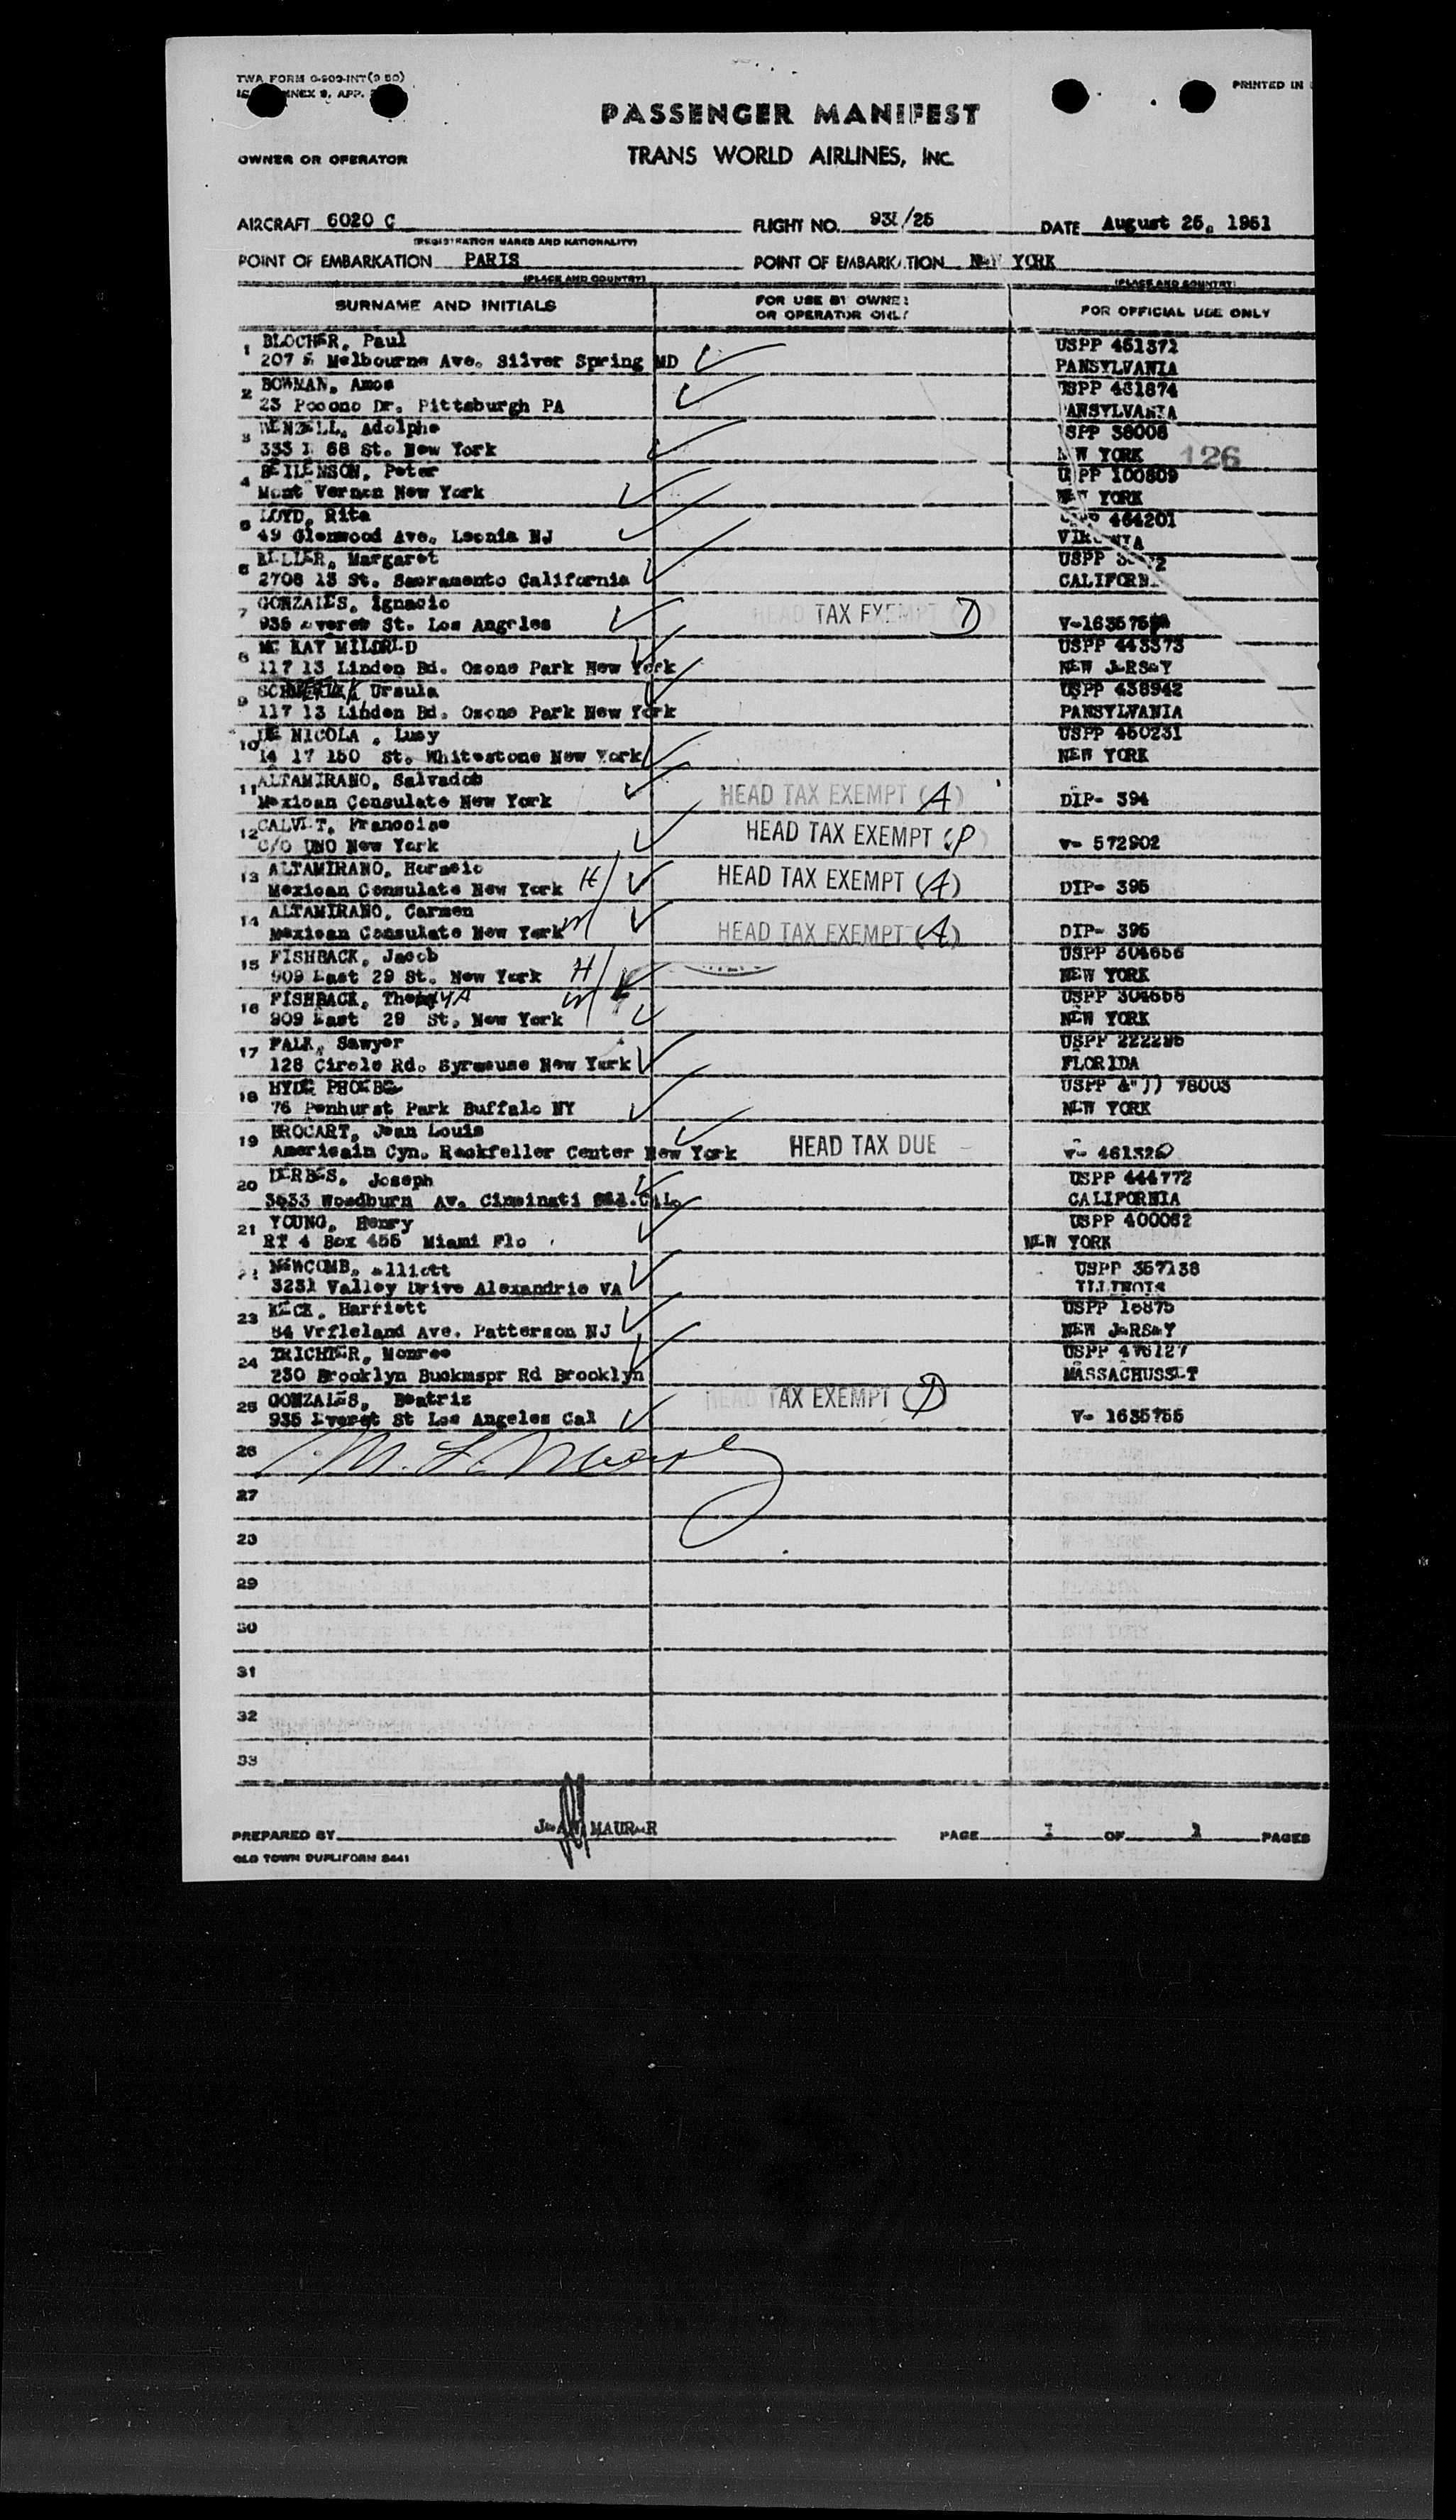 TWA FORM O-909-INT(9 50)
NNEX 9, APP.
PRINTED IN
PASSENGER MANIFEST
OWNER OR OPERATOR
TRANS WORLD AIRLINES, INC.
AIRCRAFT 6020 C FLIGHT NO. 931/25 DATE August 25, 1951
(REGISTRATION MARKS AND NATIONALITY)
POINT OF EMBARKATION PARIS POINT OF EMBARKATION NEW YORK
(PLACE AND COUNTRY) (PLACE AND COUNTRY)
SURNAME AND INITIALS FOR USE BY OWNER OR OPERATOR ONLY FOR OFFICIAL USE ONLY
1 BLOCHER, Paul USPP 451372
207 E Melbourne Ave. Silver Spring MD PANSYLVANIA
2 BOWMAN, Amos USPP 431874
23 Pocono Dr. Pittsburgh PA PANSYLVANIA
3 WENZELL, Adolphe USPP 36006
333 E 68 St. New York NEW YORK 126
4 BEILENSON, Peter USPP 100809
Mont Vernon New York NEW YORK
5 LOYD, Rita USPP 464201
49 Glenwood Ave. Leonia NJ VIRGINIA
6 Margaret USPP
2708 13 St. Sacramento California CALIFORN
7 GONZALES, Ignacio
935 Everet St. Los Angeles HEAD TAX EXEMPT (D) V-1635755
8 MC KAY MILDRED USPP 443373
117 13 Linden Bd. Ozone Park New York NEW JERSEY
9 Ursula USPP 438942
117 13 Linden Bd. Ozone Park New York PANSYLVANIA
10 DE NICOLA , Lucy USPP 450231
14 17 150 St. Whitestone New York NEW YORK
11 ALTAMIRANO, Salvador
Mexican Consulate New York HEAD TAX EXEMPT (A) DIP- 394
12 CALVET, Francoise
C/O UNO New York HEAD TAX EXEMPT (P) v- 572902
13 ALTAMIRANO, Horacio
Mexican Consulate New York H/ HEAD TAX EXEMPT (A) DIP- 395
14 ALTAMIRANO, Carmen
Mexican Consulate New York W/ HEAD TAX EXEMPT (A) DIP- 395
15 FISHBACK, Jacob USPP 304656
909 East 29 St. New York H/ NEW YORK
16 FISHBACK, USPP 304656
909 East 29 St, New York W/ NEW YORK
17 FALK, Sawyer USPP 222295
128 Circle Rd. Syracuse New York FLORIDA
18 HYDE PHOEBE USPP &")) 78003
76 Penhurst Park Buffalo NY NEW YORK
19 BROCART, Jean Louis
Americain Cyn. Rockfeller Center New York HEAD TAX DUE v- 461320
20 DERBES, Joseph USPP 444772
3633 Woodburn Av. Cincinati CALIFORNIA
21 YOUNG, Henry USPP 400062
RT 4 Box 455 Miami Flo NEW YORK
NEWCOMB, Elliott USPP 357138
3231 Valley Drive Alexandrie VA ILLINOIS
23 KECK, Harriett USPP 16875
84 Vrfleland Ave. Patterson NJ NEW JERSEY
24 TRICHTER, Monroe USPP 476127
230 Brooklyn Buckmspr Rd Brooklyn MASSACHUSSET
25 GONZALES, Beatriz
935 Everet St Los Angeles Cal HEAD TAX EXEMPT (D) V- 1635755
26
27
28
29
30
31
32
33
PREPARED BY MAURER PAGE 1 OF 1 PAGES
OLD TOWN DUPLIFORM 8441